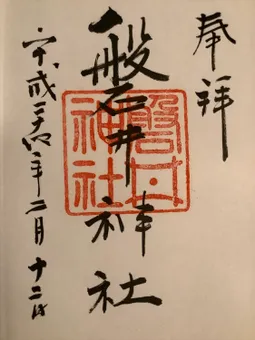 奉拝
磐井神社
平成二十六年二月十二日
磐井
神社